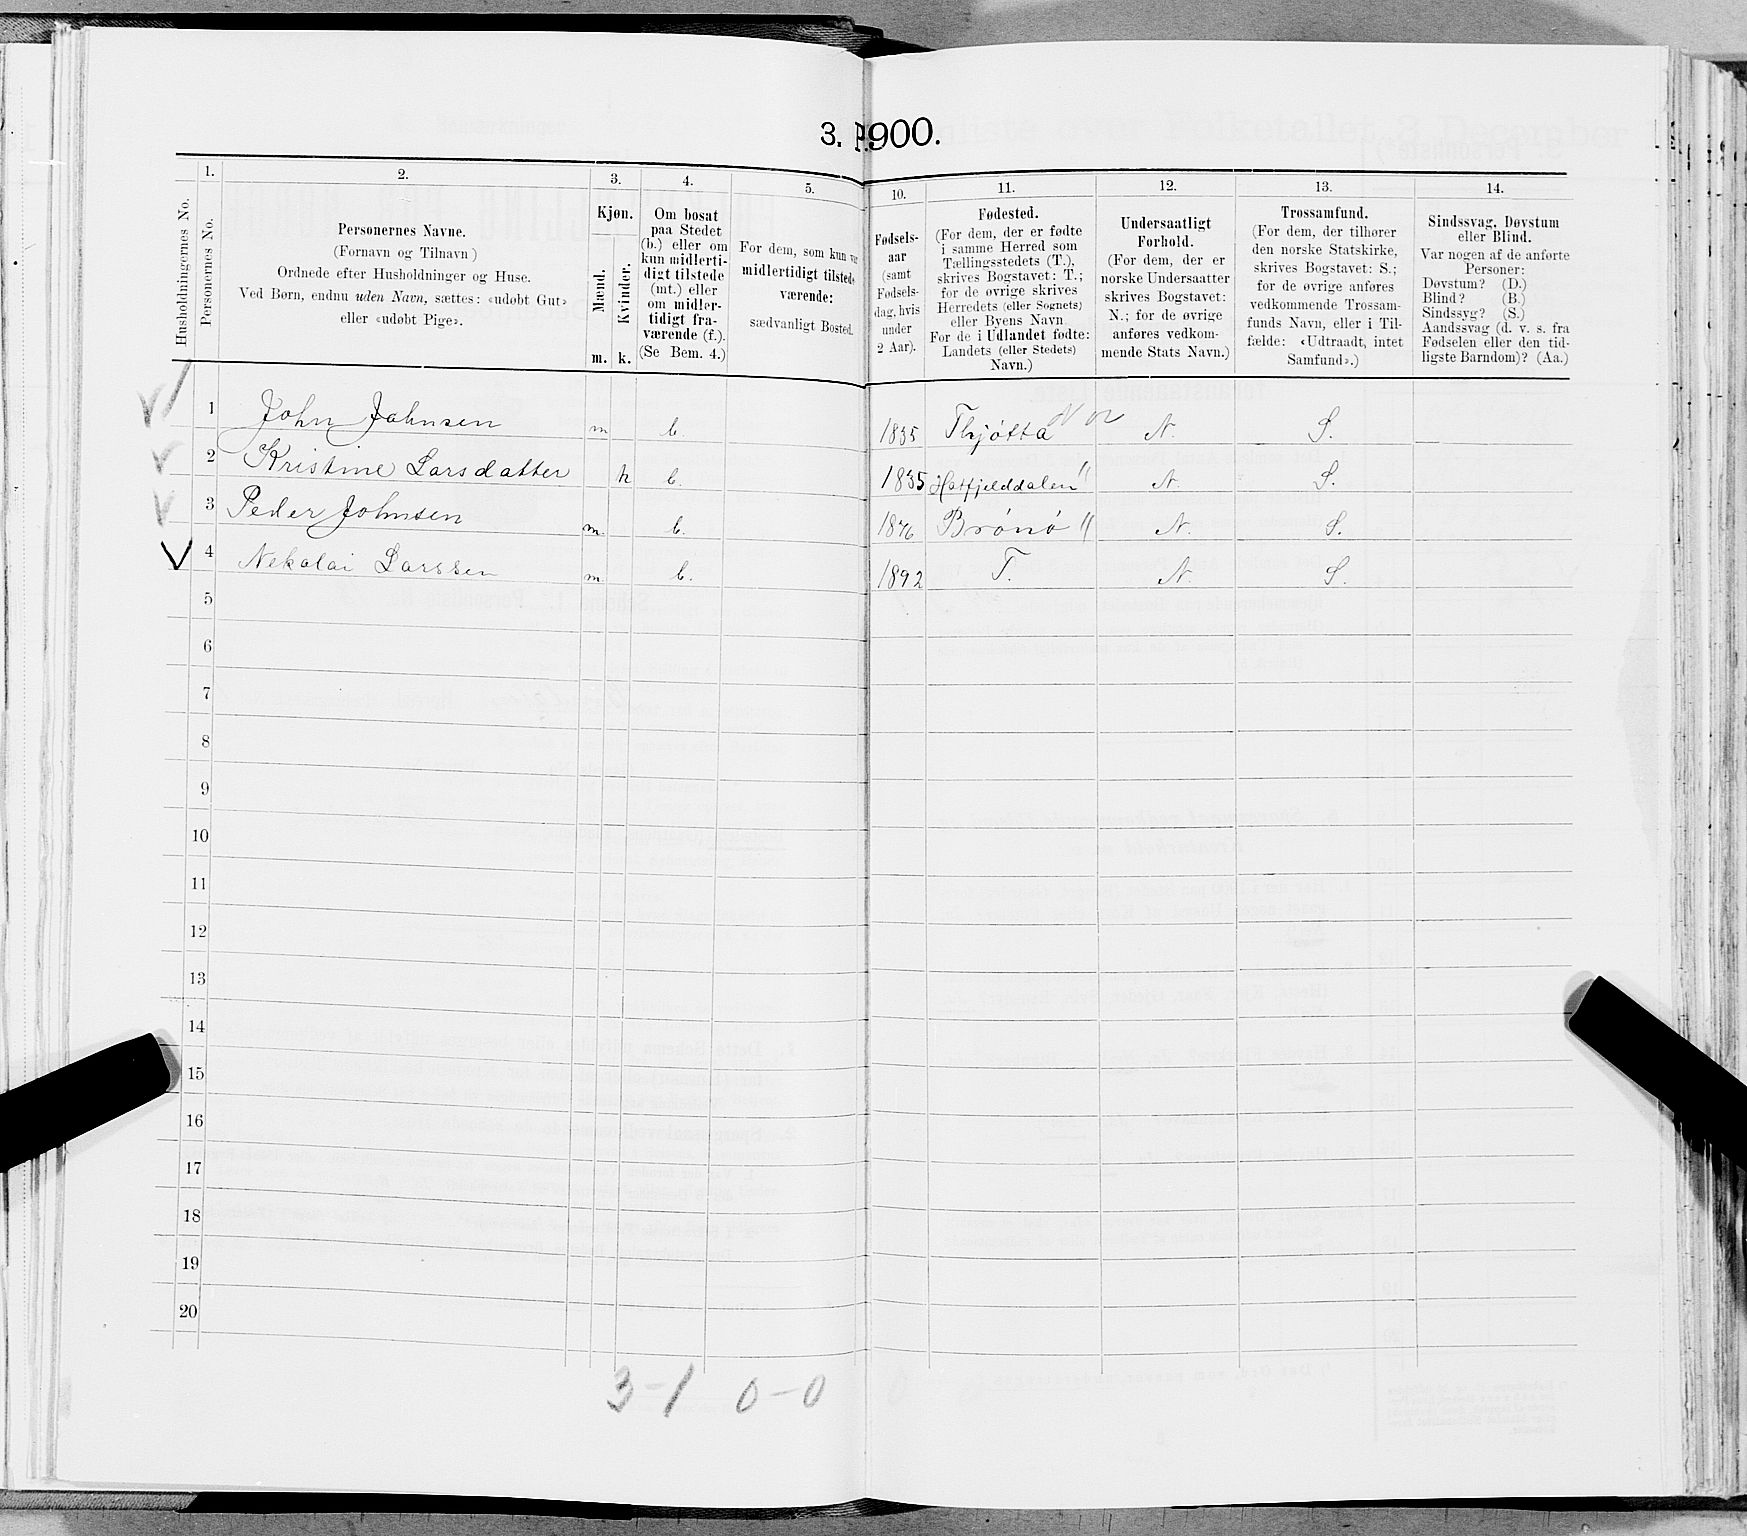 3. P.900.
1. 2. 3. 4. 5. 10. 11. 12. 13. 14.
Husholdningernes No.
Personernes No.
Personernes Navne.
(Fornavn og Tilnavn)
Ordnede efter Husholdninger og Huse.
Ved Børn, endnu uden Navn, sættes: «udøbt Gut»
eller «udøbt Pige».
Kjøn.
Mænd.
Kvinder.
m. k.
Om bosat
paa Stedet
(b.) eller om
kun midlerti-
digt tilstede
(mt.) eller
om midler-
tidigt fra-
værende (f.).
(Se Bem. 4.)
For dem, som kun var
midlertidigt tilstede-
værende:
sædvanligt Bosted.
Fødsels-
aar
(samt
Fødsels-
dag, hvis
under
2 Aar).
Fødested.
(For dem, der er fødte
i samme Herred som
Tællingsstedets (T.),
skrives Bogstavet: T.;
for de øvrige skrives
Herredets (eller Sognets)
eller Byens Navn.
For de i Udlandet fødte:
Landets (eller Stedets)
Navn.)
Undersaatligt
Forhold.
(For dem, der er
norske Undersaatter
skrives Bogstavet:
N.; for de øvrige
anføres vedkom-
mende Stats Navn.)
Trossamfund.
(For dem, der tilhører
den norske Statskirke,
skrives Bogstavet: S.;
for de øvrige anføres
vedkommende Trossam-
funds Navn, eller i Til-
fælde: «Udtraadt, intet
Samfund».)
Sindssvag, Døvstum
eller Blind.
Var nogen af de anførte
Personer:
Døvstum? (D.)
Blind? (B.)
Sindssyg? (S.)
Aandssvag (d. v. s. fra
Fødselen eller den tid-
ligste Barndom)? (Aa.)
1 John Johnsen m b. 1835 Thjøtta Nor N. S.
2 Kristine Larsdatter k b. 1835 Hatfjelddalen " N. S.
3 Peder Johnsen m. b. 1876 Brønø " N. S.
4 Nekolai Larssen m. b. 1892 T. N. S.
5
6
7
8
9
10
11
12
13
14
15
16
17
18
19
20
3-1 0-0